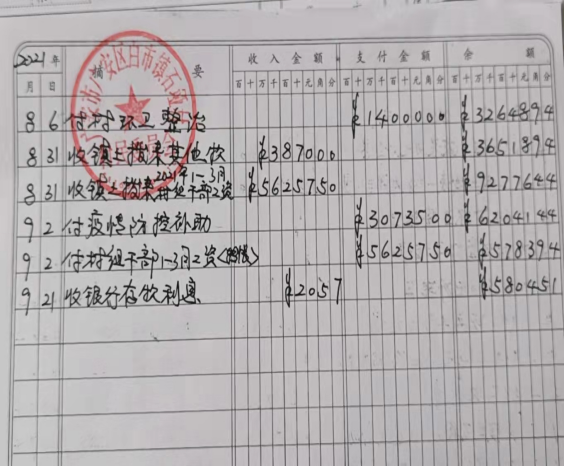 2021年 摘 要 收入金额 支付金额 余 额
月 日 百十万千百十元角分 百十万千百十元角分 百十万千百十元角分
8 6 付村环卫整治 ¥1400000 ¥3264894
8 31 收镇上拨来其他款 ¥387000 ¥3651894
2021年1-3月
8 31 收镇上拨来村组干部工资 ¥5625750 ¥9277644
9 2 付疫情防控补助 ¥3073500 ¥6204144
9 2 付村组干部1-3月工资 ¥5625750 ¥578394
9 21 收银行存款利息 ¥2057 ¥580451
安区白市镇石